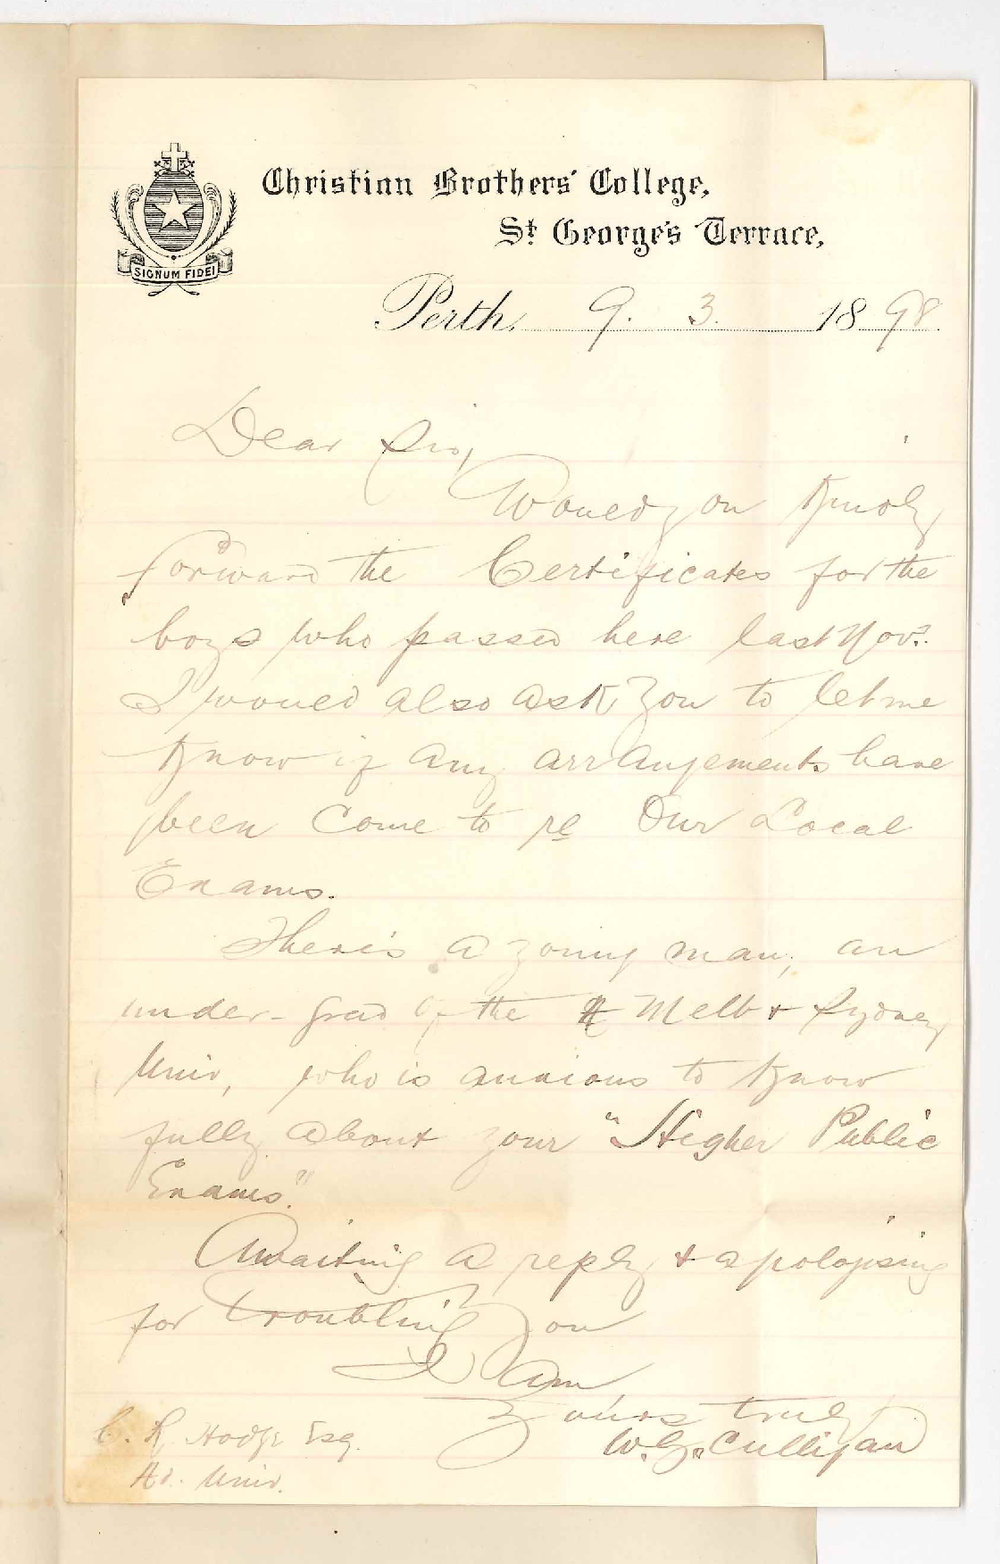 SIGNUM FIDEI
Christian Brothers' College,
St. George's Terrace,
Perth, 9. 3. 1898.
Dear Sir,
Would you kindly
forward the Certificates for the
boys who passed here last Nov?.
I would also ask you to let me
know if any arrangements have
been come to re Our Local
Exams.
There's a young man, an
under-grad of the Melb & Sydney
Univ, who is anxious to know
fully about your "Higher Public
Exams."
Awaiting a reply & apologising
for troubling you
I am
Yours truly
W. G. Culligan
C. R. Hodge Esq.
Ad. Univ.